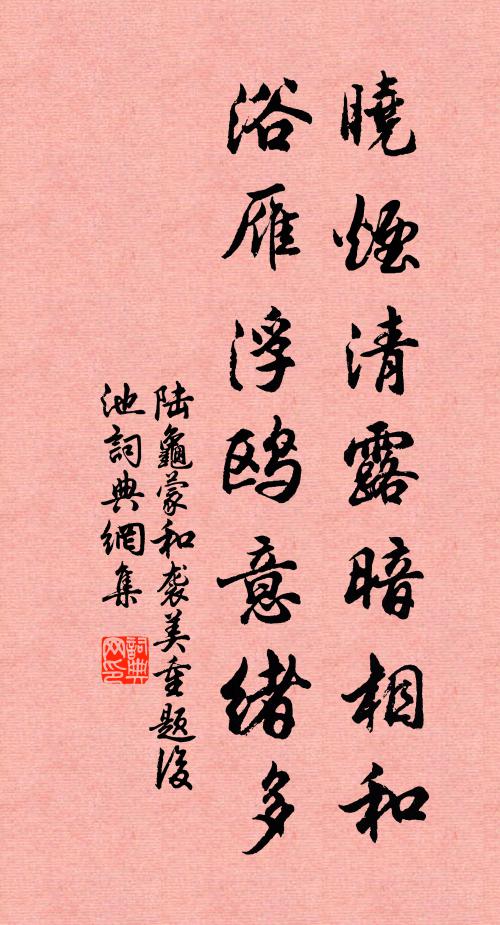 曉煙清露暗相和
浴雁浮鸥意緒多
陆龜蒙和袭美重题後
池詞典網集
詞典网印